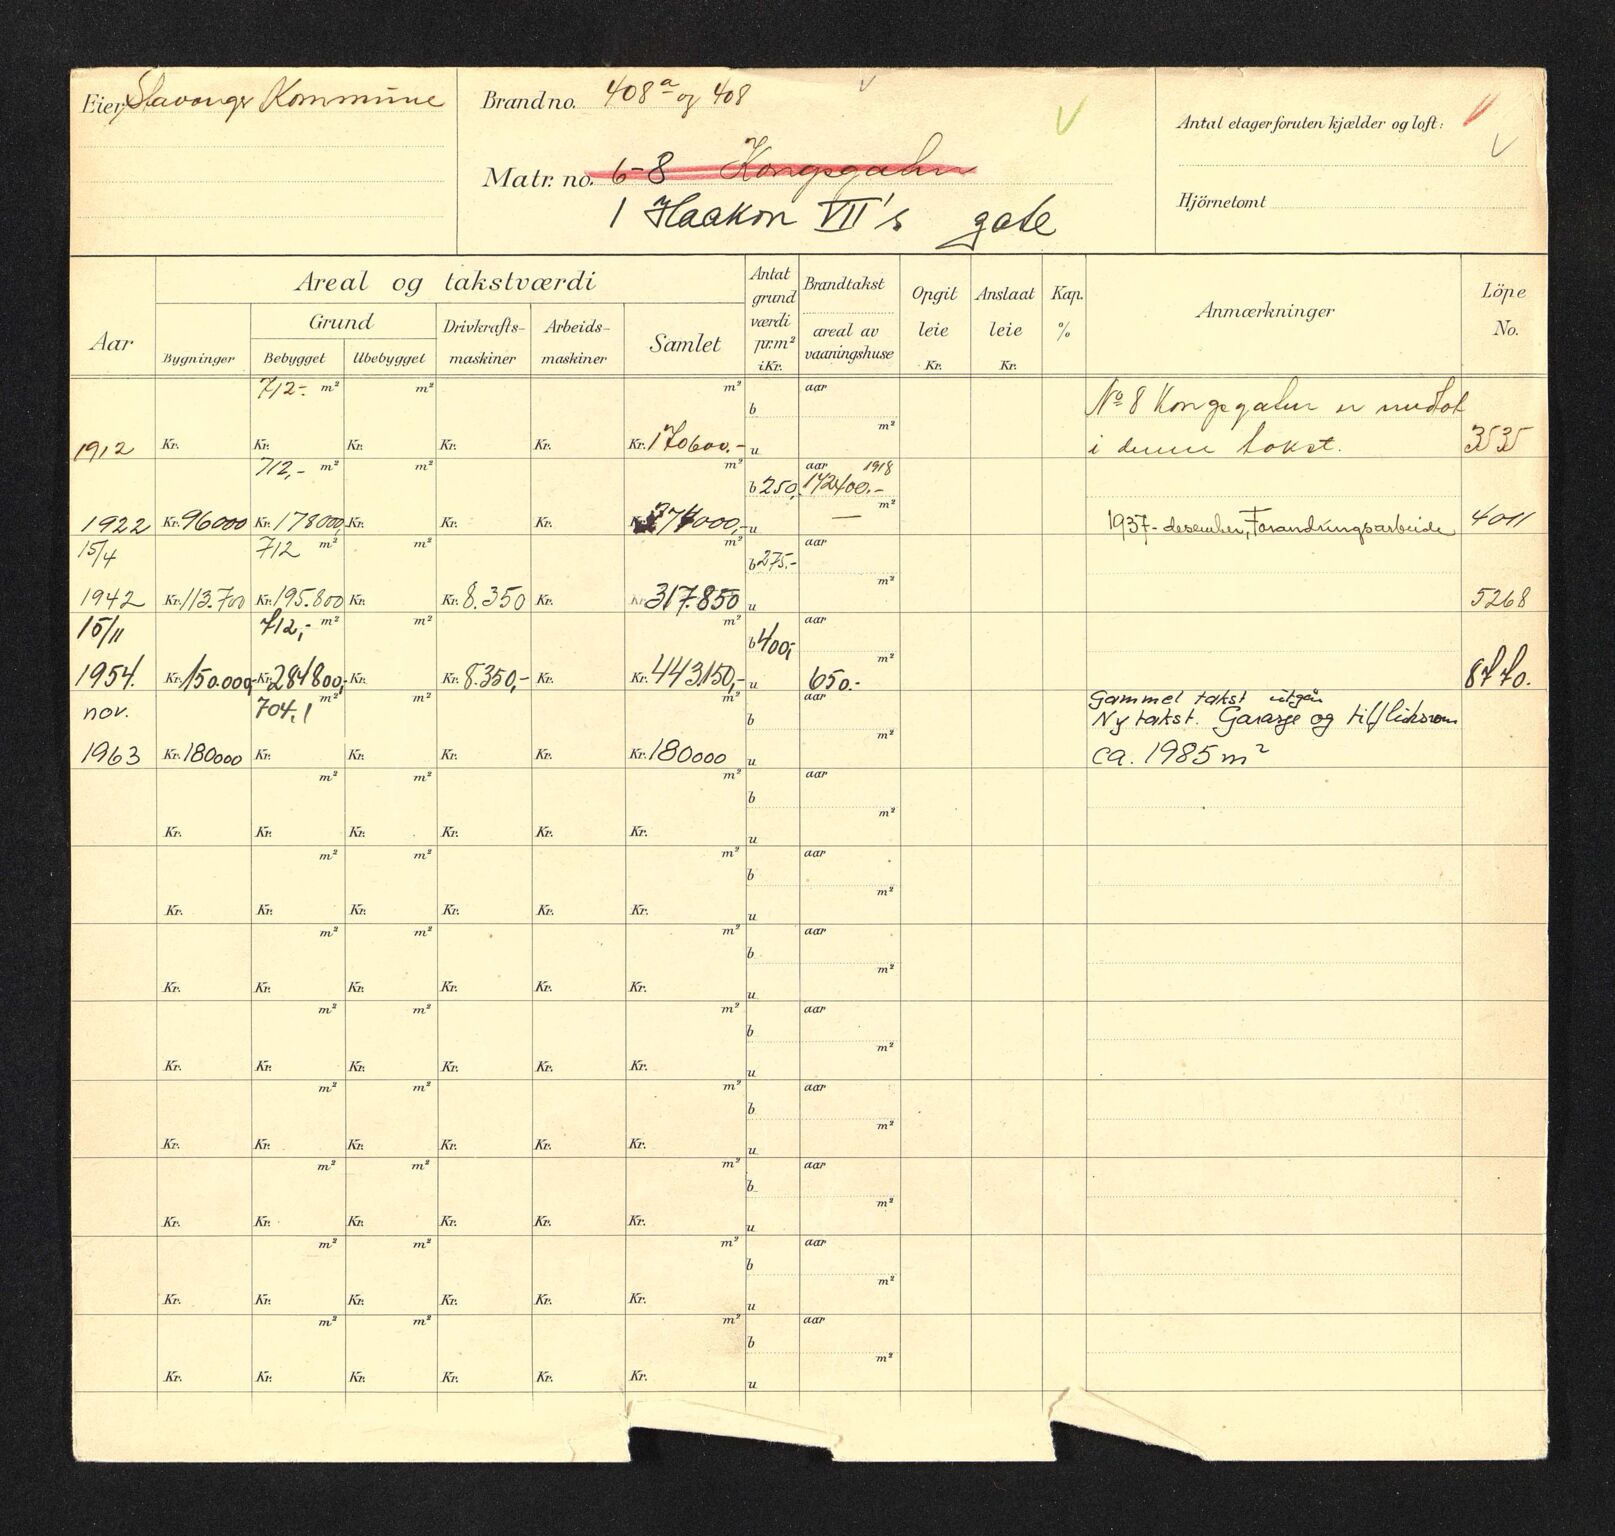 Eier, Stavanger Kommune
Brand no. 408a og 408
Matr. no. 6-8 Kongsgatun
1 Haakon VII's gate
Antal etager foruten kjælder og loft:
Hjörnetomt
Aar
Areal og takstværdi
Bygninger
Grund
Bebygget
Ubebygget
Drivkrafts-
maskiner
Arbeids-
maskiner
Samlet
Antat
grund
værdi
pr.m²
i Kr.
Brandtakst
areal av
vaaningshuse
Opgit
leie
Kr.
Anslaat
leie
Kr.
Kap.
%
Anmærkninger
Löpe
No.
712.- m² m² m² aar
b m²
1912 Kr. Kr. Kr. Kr. Kr. Kr. 170600.- u
No 8 Kongsgatun er medtat
i denne takst. 3535
712,- m² m² m² aar 1918
b 250, 172400.- m²
1922 Kr. 96000 Kr. 178000, Kr. Kr. Kr. Kr. 274000,- u —
1937- desember, Forandringsarbeide 4011
15/4 712 m² m² m² aar
b 275.- m²
1942 Kr. 113.700 Kr. 195.800 Kr. Kr. 8.350 Kr. Kr. 317.850 u 5268
15/11 712,- m² m² m² aar
b 400,- m²
1954. Kr. 150.000,- Kr. 284800,- Kr. Kr. 8.350,- Kr. Kr. 443150,- u 650.- 8770.
nov. 704,1 m² m² m² aar
b m²
1963 Kr. 180000 Kr. Kr. Kr. Kr. Kr. 180000 u
Gammel takst utgår
Ny takst. Garasje og tilfluktsrom
ca. 1985 m²
m² m² m² aar
b m²
Kr. Kr. Kr. Kr. Kr. Kr. u
m² m² m² aar
b m²
Kr. Kr. Kr. Kr. Kr. Kr. u
m² m² m² aar
b m²
Kr. Kr. Kr. Kr. Kr. Kr. u
m² m² m² aar
b m²
Kr. Kr. Kr. Kr. Kr. Kr. u
m² m² m² aar
b m²
Kr. Kr. Kr. Kr. Kr. Kr. u
m² m² m² aar
b m²
Kr. Kr. Kr. Kr. Kr. Kr. u
m² m² m² aar
b m²
Kr. Kr. Kr. Kr. Kr. Kr. u
m² m² m² aar
b m²
Kr. Kr. Kr. Kr. Kr. Kr. u